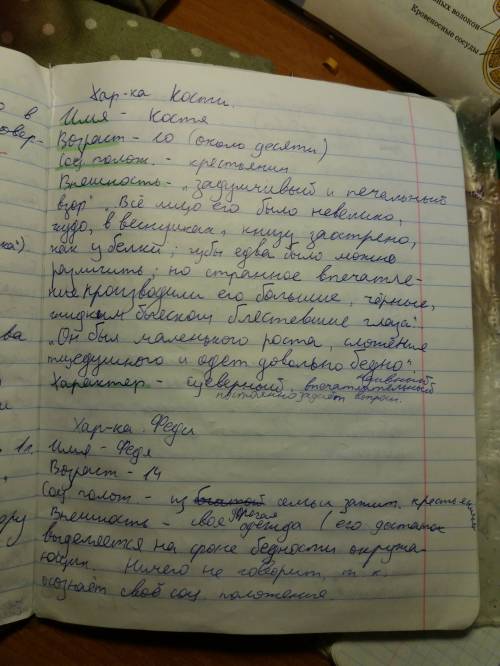 ных волокон
Кровеносные сосуды
Хар-ка Кости.
Имя - Костя
Возраст - 10 (около десяти)
Соц. полож. - крестьянин
Внешность - „задумчивый и печальный
взор". „Всё лицо его было невелико,
худо, в веснушках, книзу заострено,
как у белки; губы едва было можно
различить; но странное впечатле-
ние производили его большие, чёрные,
жидким блеском блестевшие глаза".
„Он был маленького роста, сложения
тщедушного и одет довольно бедно".
Характер - суеверный, впечатлительный
постоянно задаёт вопросы.
Хар-ка Феди
Имя - Федя
Возраст - 14
Соц. полож - из богатой семьи зажит. крестьянин
Внешность - своя дорогая одежда (его достаток
выделяется на фоне бедности окружа-
ющих. Ничего не говорит, т. к.
осознаёт своё соц. положение